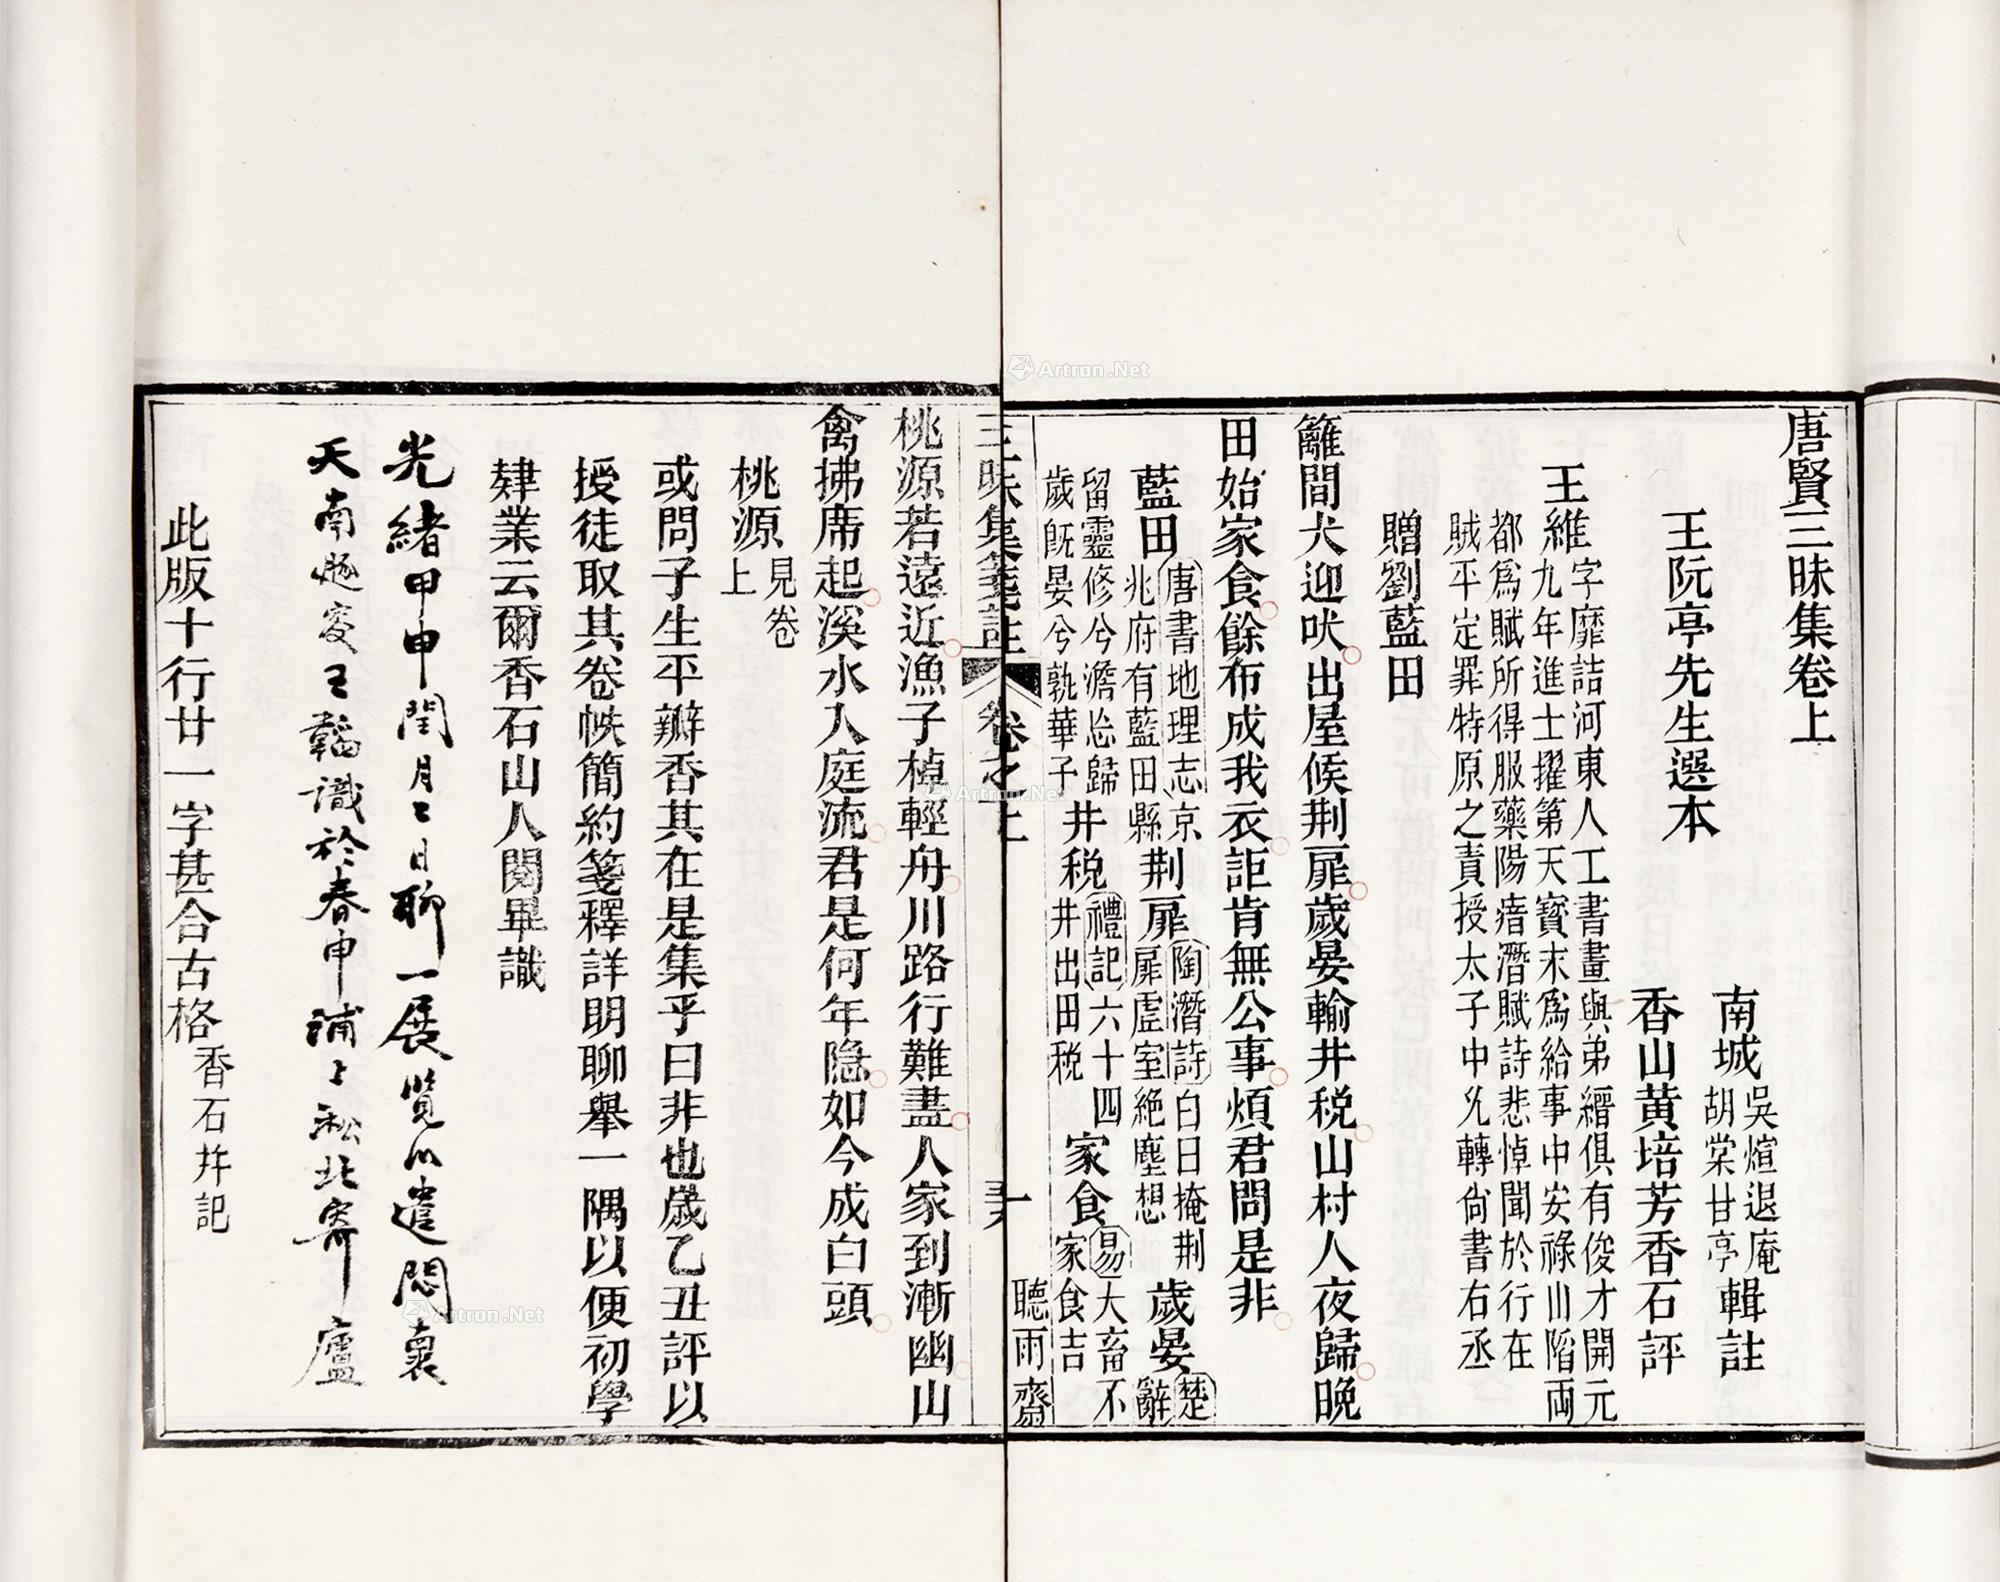 唐賢三昧集卷上
南城吳煊退庵輯註
胡棠甘亭
王阮亭先生選本
香山黄培芳香石評
王維字摩詰河東人工書畫與弟縉俱有俊才開元
九年進士擢第天寶末爲給事中安祿山陷兩
都爲賊所得服藥陽瘖潛賦詩悲悼聞於行在
賊平定罪特原之責授太子中允轉尙書右丞
贈劉藍田
籬間犬迎吠出屋候荆扉歲晏輸井税山村人夜歸晚
田始家食餘布成我衣詎肯無公事煩君問是非
藍田唐書地理志京
兆府有藍田縣
荆扉陶潛詩白日掩荆
扉虛室絶塵想
歲晏楚
辭
留靈修兮澹忘歸
歲旣晏兮孰華子
井税禮記六十四
井出田税
家食易大畜不
家食吉
聽雨齋
三昧集箋註
卷之上
桃源若遠近漁子棹輕舟川路行難盡人家到漸幽山
禽拂席起溪水入庭流君是何年隐如今成白頭
桃源見卷
上
或問子生平瓣香其在是集乎曰非也歲乙丑評以
授徒取其卷帙簡約箋釋詳明聊舉一隅以便初學
肄業云爾香石山人閱畢識
光緒甲申閏月乙日聊一展覽以遣悶裏
天南遯叟王韜識於春申浦上淞北寄廬
此版十行廿一字甚合古格香石幷記
Artron.Net
Artron.Net
Artron.Net